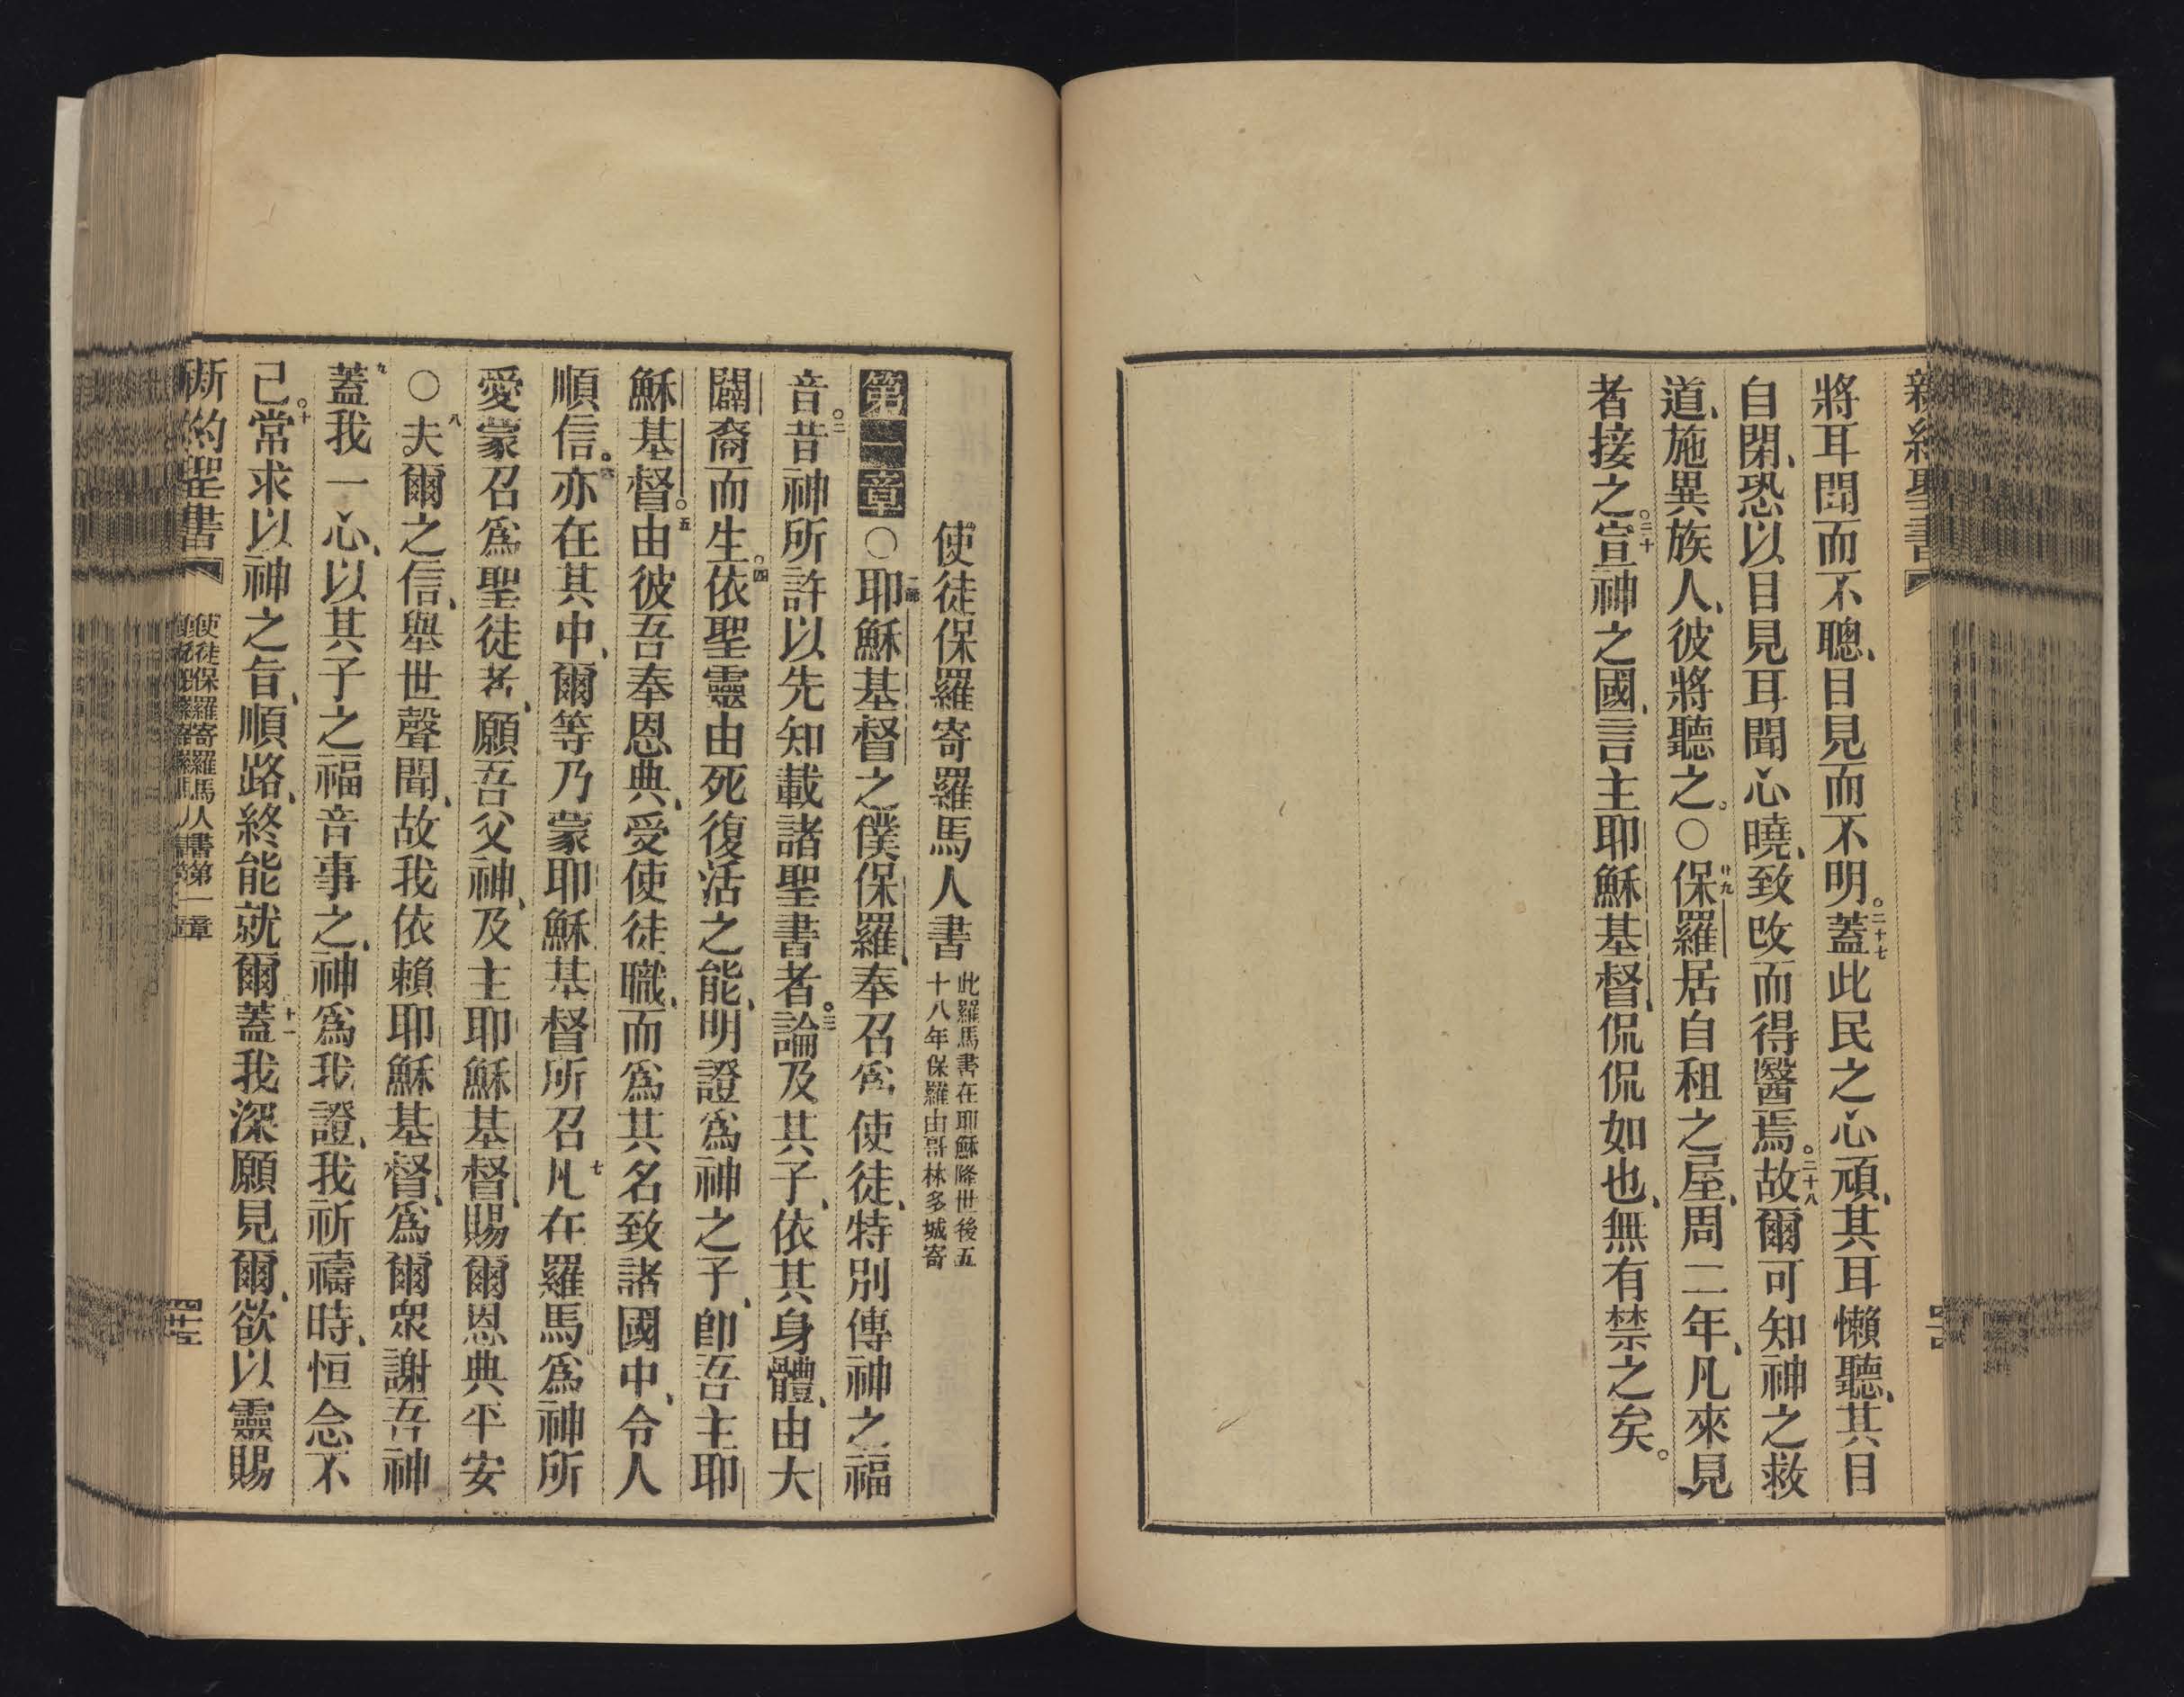 新約聖書
將耳聞而不聰、目見而不明。二十七蓋此民之心頑、其耳懶聽、其目
自閉、恐以目見耳聞心曉、致改而得醫焉。二十八故爾可知神之救
道、施異族人、彼將聽之。○廿九保羅居自租之屋、周二年、凡來見
者接之。三十宣神之國、言主耶穌基督、侃侃如也、無有禁之矣。
使徒保羅寄羅馬人書
此羅馬書在耶穌降世後五
十八年保羅由哥林多城寄
第一章○一節耶穌基督之僕保羅、奉召爲使徒、特別傳神之福
音。二昔神所許以先知載諸聖書者。三論及其子、依其身體、由大
闢裔而生。四依聖靈由死復活之能、明證爲神之子、卽吾主耶
穌基督。五由彼吾奉恩典、受使徒職、而爲其名致諸國中、令人
順信。六亦在其中、爾等乃蒙耶穌基督所召七凡在羅馬爲神所
愛蒙召爲聖徒者、願吾父神、及主耶穌基督、賜爾恩典平安
○八夫爾之信、舉世聲聞、故我依賴耶穌基督、爲爾衆謝吾神
九蓋我一心、以其子之福音事之、神爲我證、我祈禱時、恒念不
已。十常求以神之旨、順路、終能就爾十一蓋我深願見爾、欲以靈賜
新約聖書
使徒保羅寄羅馬人書第一章
四十五